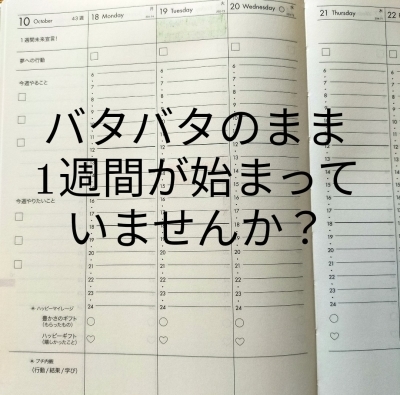 10 October 43週
18 Monday 月
19 Tuesday 火
20 Wednesday
21 Thursday 木
22
1週間未来宣言!
夢への行動
今週やること
バタバタのまま
1週間が始まって
いませんか?
今週やりたいこと
6
7
8
9
10
11
12
13
16
17
18
19
20
21
22
23
24
＊ハッピーマイレージ
豊かさのギフト
(もらったもの)
ハッピーギフト
(嬉しかったこと)
＊プチ内観
(行動/結果/学び)